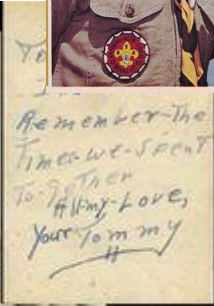 To
Remember-The
Times we-Spent
To-gether
All-my-Love,
Your Tommy